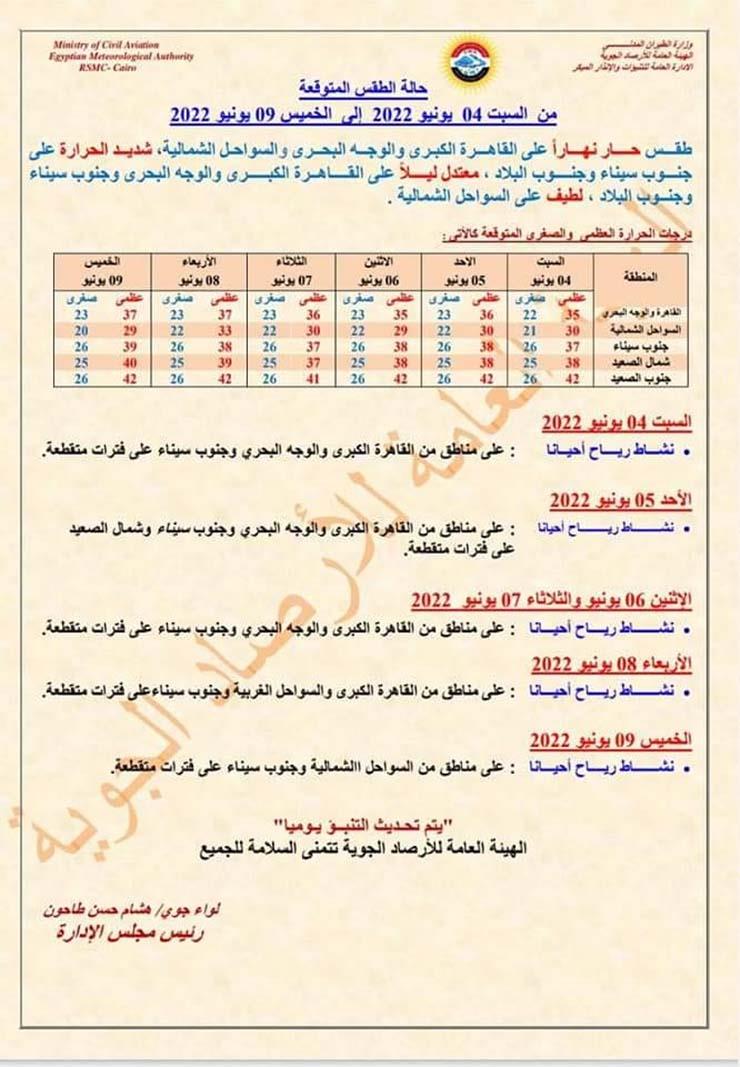 Ministry of Civil Aviation
Egyptian Meteorological Authority
RSMC- Cairo
وزارة الطيران المدنى
الهيئة العامة للأرصاد الجوية
الادارة العامة للتنبؤات والإنذار المبكر
حالة الطقس المتوقعة
من السبت 04 يونيو 2022 إلى الخميس 09 يونيو 2022
طقس حار نهاراً على القاهرة الكبرى والوجه البحرى والسواحل الشمالية، شديد الحرارة على
جنوب سيناء وجنوب البلاد ، معتدل ليلاً على القاهرة الكبرى والوجه البحرى وجنوب سيناء
وجنوب البلاد ، لطيف على السواحل الشمالية .
درجات الحرارة العظمى والصغرى المتوقعة كالآتى:
المنطقة السبت الاحد الاثنين الثلاثاء الأربعاء الخميس
04 يونيو 05 يونيو 06 يونيو 07 يونيو 08 يونيو 09 يونيو
عظمى صغرى عظمى صغرى عظمى صغرى عظمى صغرى عظمى صغرى عظمى صغرى
القاهرة والوجه البحري 35 22 36 23 35 23 36 23 37 23 37 23
السواحل الشمالية 30 21 30 22 29 22 30 22 33 22 29 20
جنوب سيناء 37 26 38 26 38 26 37 26 38 26 39 26
شمال الصعيد 38 25 38 25 38 25 37 25 39 25 40 25
جنوب الصعيد 42 26 42 26 42 26 41 26 42 26 42 26
السبت 04 يونيو 2022
• نشاط رياح أحيانا : على مناطق من القاهرة الكبرى والوجه البحري وجنوب سيناء على فترات متقطعة.
الأحد 05 يونيو 2022
• نشاط رياح أحيانا : على مناطق من القاهرة الكبرى والوجه البحري وجنوب سيناء وشمال الصعيد
على فترات متقطعة.
الاثنين 06 يونيو والثلاثاء 07 يونيو 2022
• نشاط رياح أحيانا : على مناطق من القاهرة الكبرى والوجه البحري وجنوب سيناء على فترات متقطعة.
الأربعاء 08 يونيو 2022
• نشاط رياح أحيانا : على مناطق من القاهرة الكبرى والسواحل الغربية وجنوب سيناءعلى فترات متقطعة.
الخميس 09 يونيو 2022
• نشاط رياح أحيانا : على مناطق من السواحل االشمالية وجنوب سيناء على فترات متقطعة.
"يتم تحديث التنبؤ يوميا"
الهيئة العامة للأرصاد الجوية تتمنى السلامة للجميع
لواء جوي/ هشام حسن طاحون
رئيس مجلس الإدارة
الهيئة العامة للأرصاد الجوية